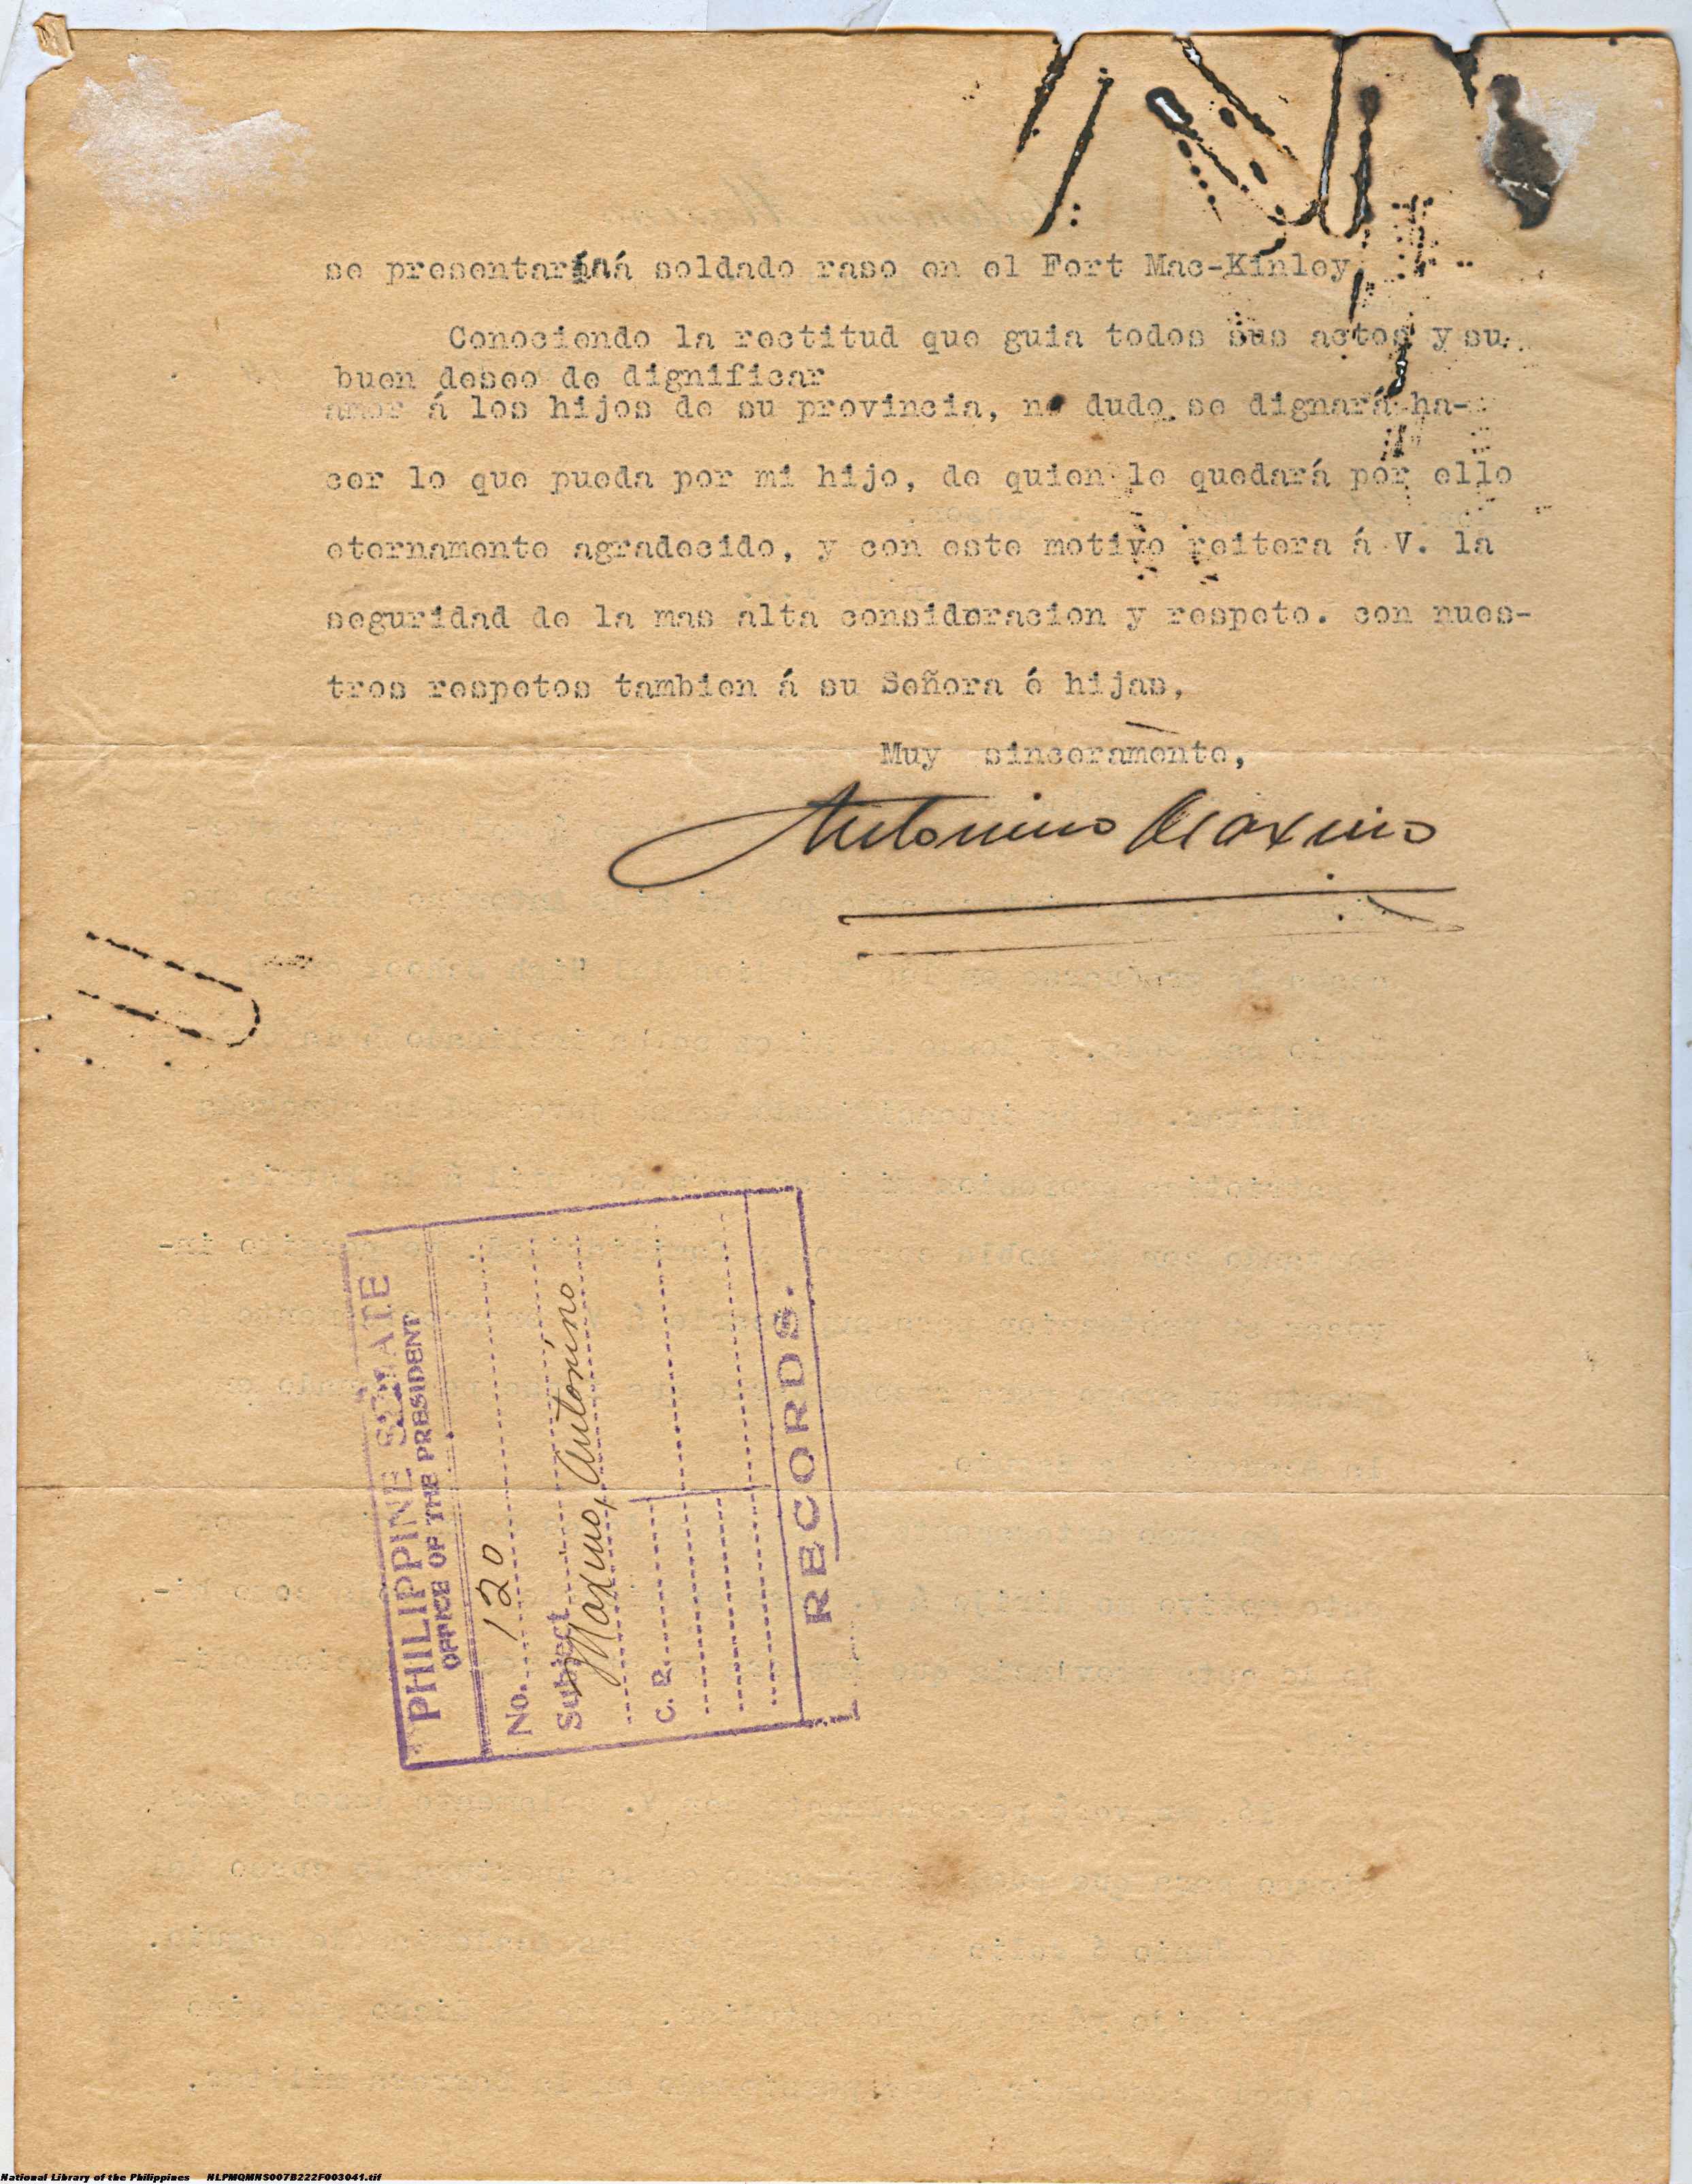 se presentará á soldado raso en el Fort Mac-Kinley,
Conociendo la rectitud que guia todos sus actos y su
buen deseo de dignificar
amor á los hijos de su provincia, no dudo se dignará ha-
cer lo que pueda por mi hijo, de quien le quedará por ello
eternamente agradecido, y con este motivo reitera á V. la
seguridad de la mas alta consideracion y respeto. con nues-
tros respetos tambien á su Señora é hijas,
Muy sinceramente,
Antonino Maximo
PHILIPPINE SENATE
OFFICE OF THE PRESIDENT
No. 120
Subject
Maximo, Antonino
C. R.
RECORDS.
National Library of the Philippines NLPMQMNS007B222F003041.tif